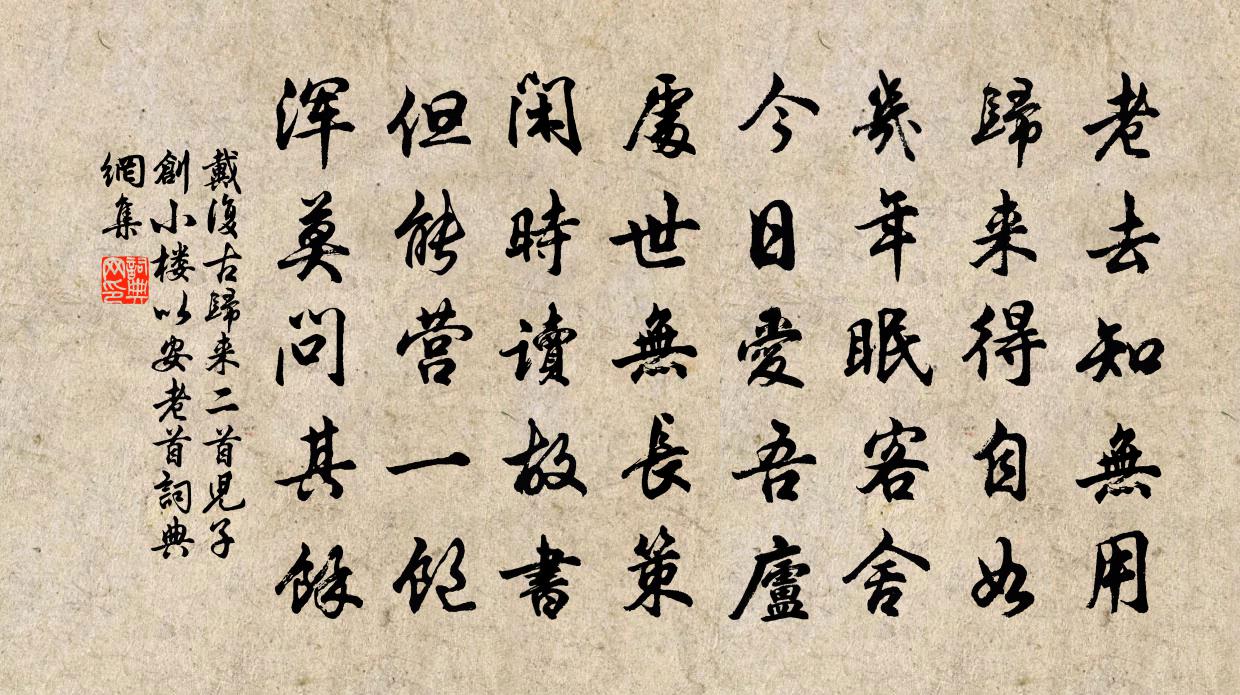 老去知無用
歸来得自如
幾年眠客舍
今日愛吾廬
處世無長策
閑時讀故書
但能营一飽
浑莫問其餘
戴復古歸来二首児子
創小楼以安老首詞典
網集
詞典网印